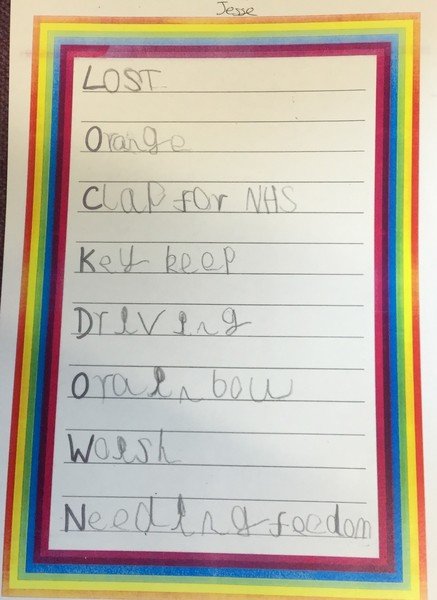 Jesse
LOST
Orange
Clap for NHS
Key keep
Driving
Orainbow
Woish
Needing foedom